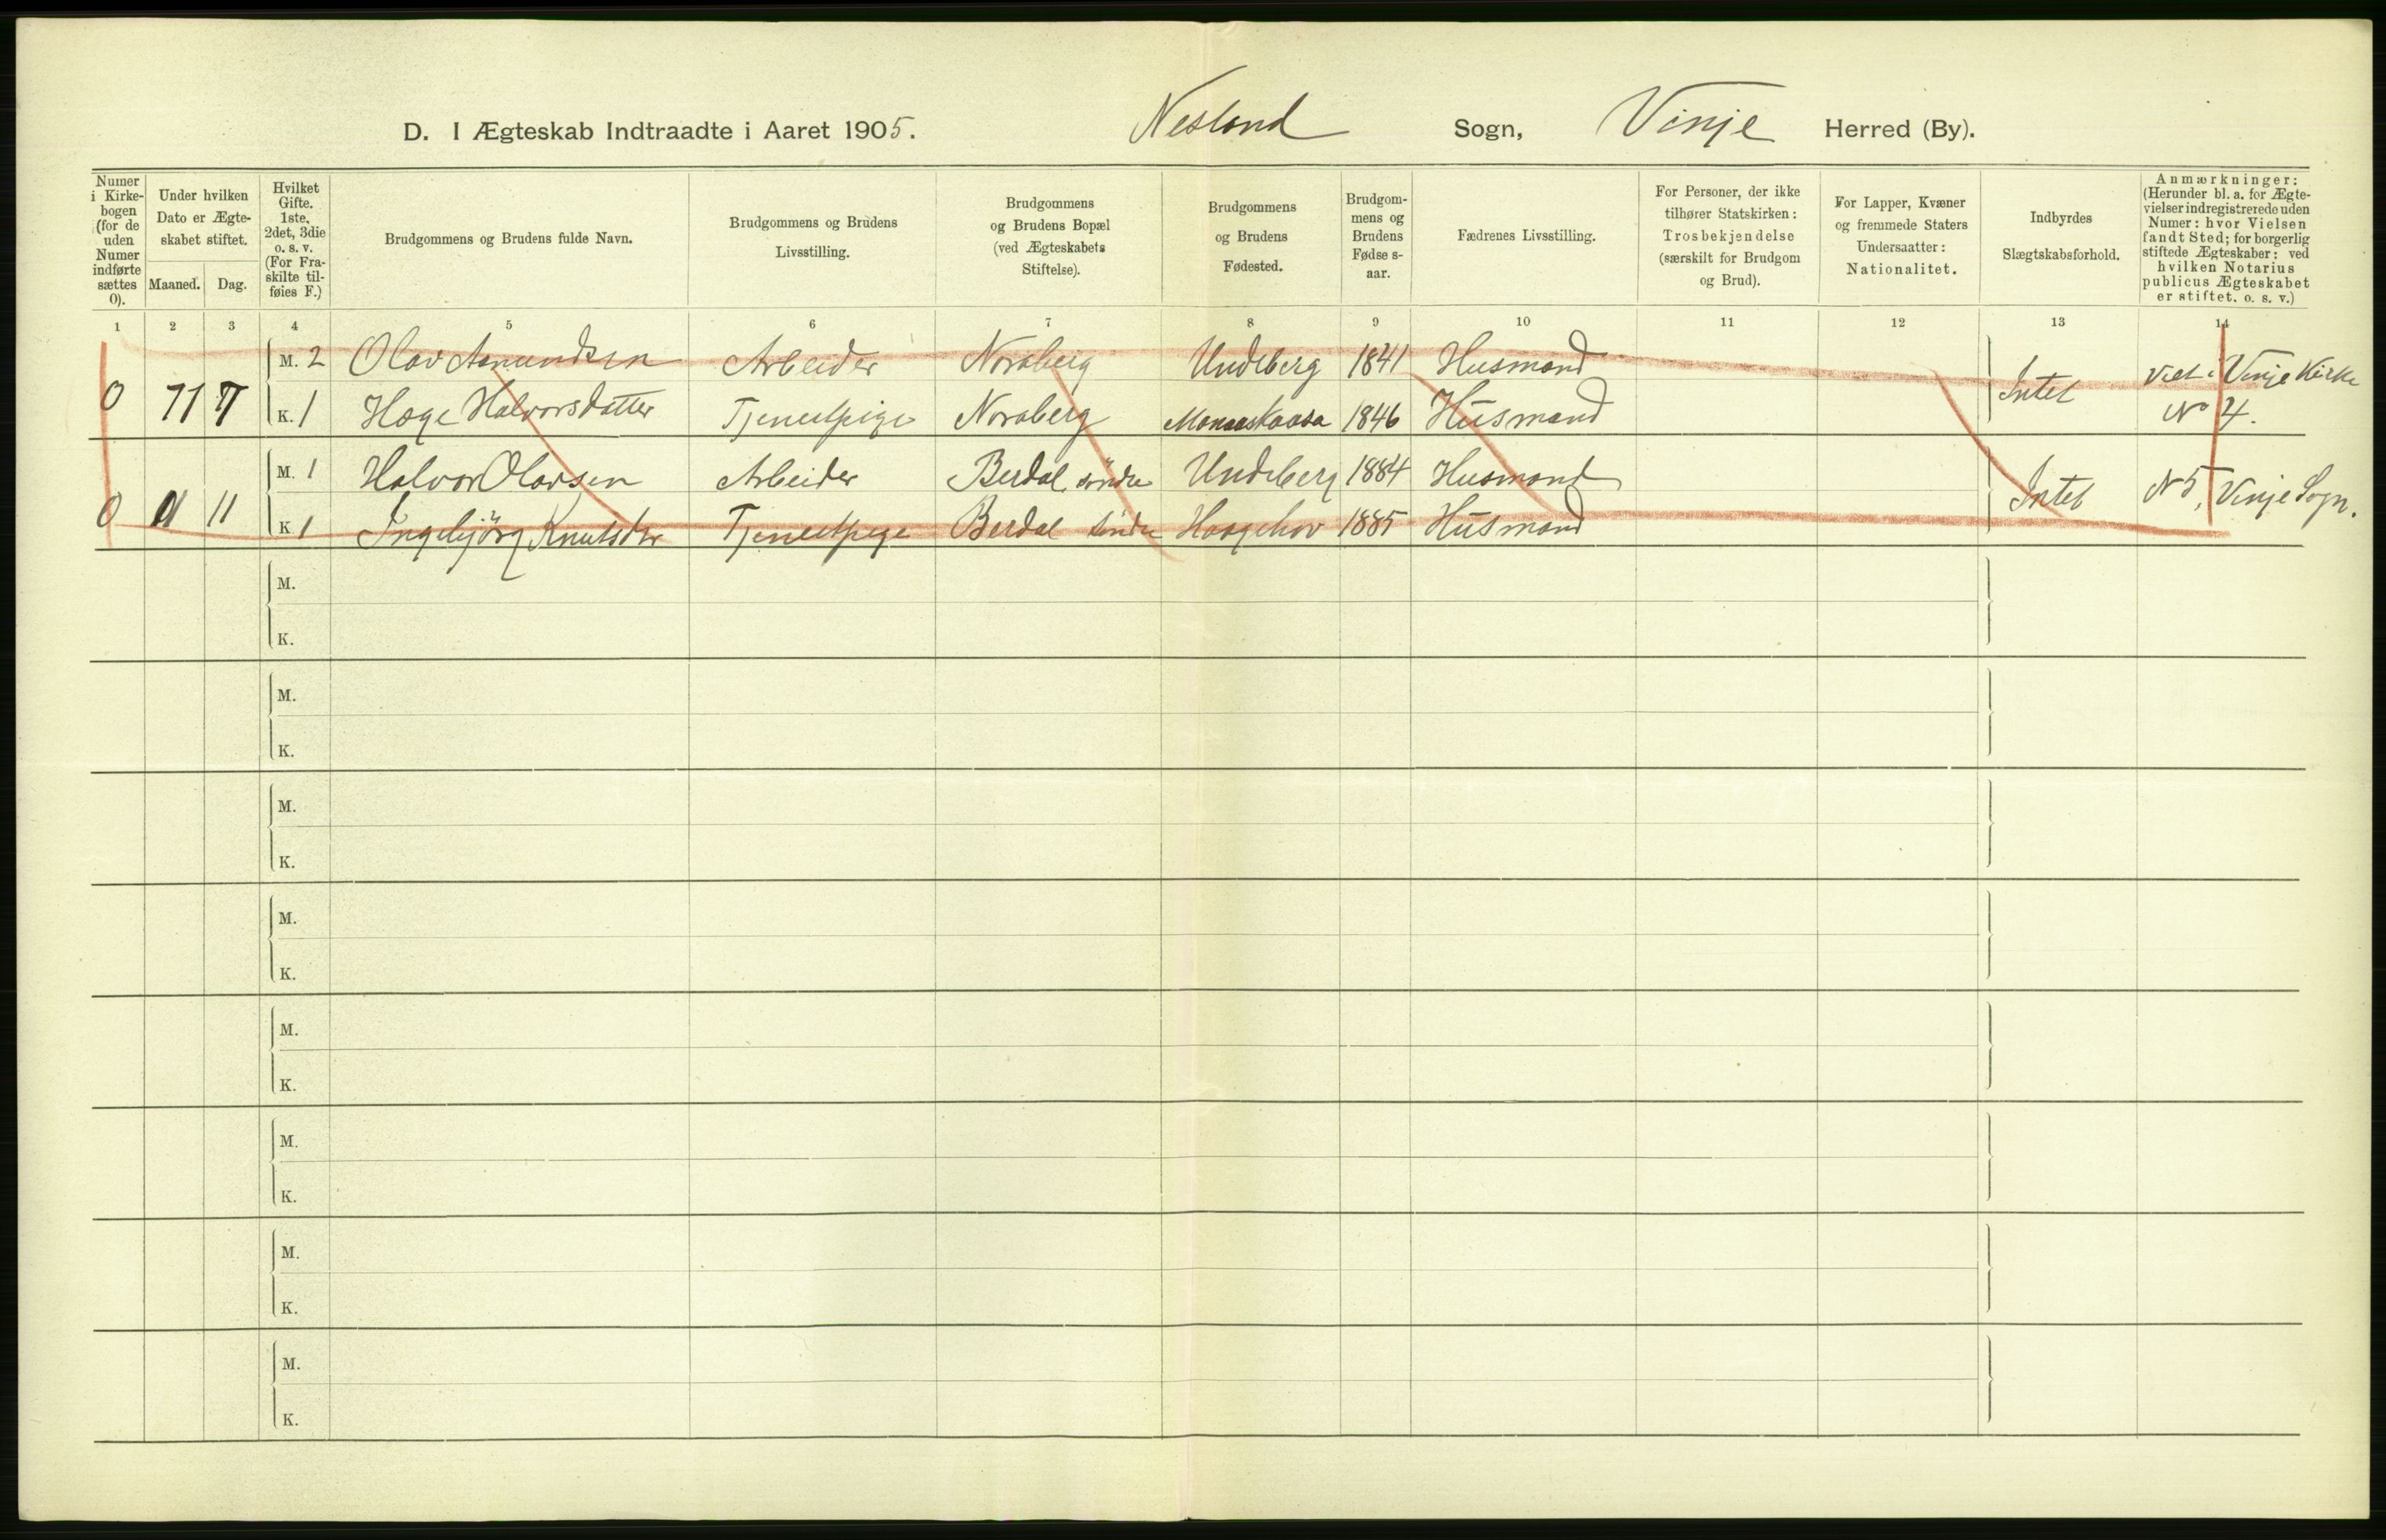 D. I Ægteskab Indtraadte i Aaret 1905. Nesland Sogn, Vinje Herred (By).
Numer i Kirkebogen (for de uden Numer indførte sættes 0).
Under hvilken Dato er Ægteskabet stiftet.
Maaned. Dag.
Hvilket Gifte. 1ste, 2det, 3die o. s. v. (For Fraskilte tilføies F.)
Brudgommens og Brudens fulde Navn.
Brudgommens og Brudens Livsstilling.
Brudgommens og Brudens Bopæl (ved Ægteskabets Stiftelse).
Brudgommens og Brudens Fødested.
Brudgommens og Brudens Fødselsaar.
Fædrenes Livsstilling.
For Personer, der ikke tilhører Statskirken: Trosbekjendelse (særskilt for Brudgom og Brud).
For Lapper, Kvæner og fremmede Staters Undersaatter: Nationalitet.
Indbyrdes Slægtskabsforhold.
Anmærkninger: (Herunder bl. a. for Ægtevielser indregistrerede uden Numer: hvor Vielsen fandt Sted; for borgerlig stiftede Ægteskaber: ved hvilken Notarius publicus Ægteskabet er stiftet. o. s. v.)
1 2 3 4 5 6 7 8 9 10 11 12 13 14
M. 2 Olav Asmundsen Arbeider Noraberg Undeberg 1841 Husmand Intet Viet i Vinje Kirke
0 K. 1 Hæge Halvorsdatter Tjenestpige Noraberg 1846 Husmand No 4.
M. 1 Halvor Olavsen Arbeider Berdal søndre Undeberg 1884 Husmand Intet N 5, Vinje Sogn.
0 11 K. 1 Ingebjörg Knutsdtr Tjenestpige Berdal söndre Haagehov 1885 Husmand
M.
K.
M.
K.
M.
K.
M.
K.
M.
K.
M.
K.
M.
K.
M.
K.